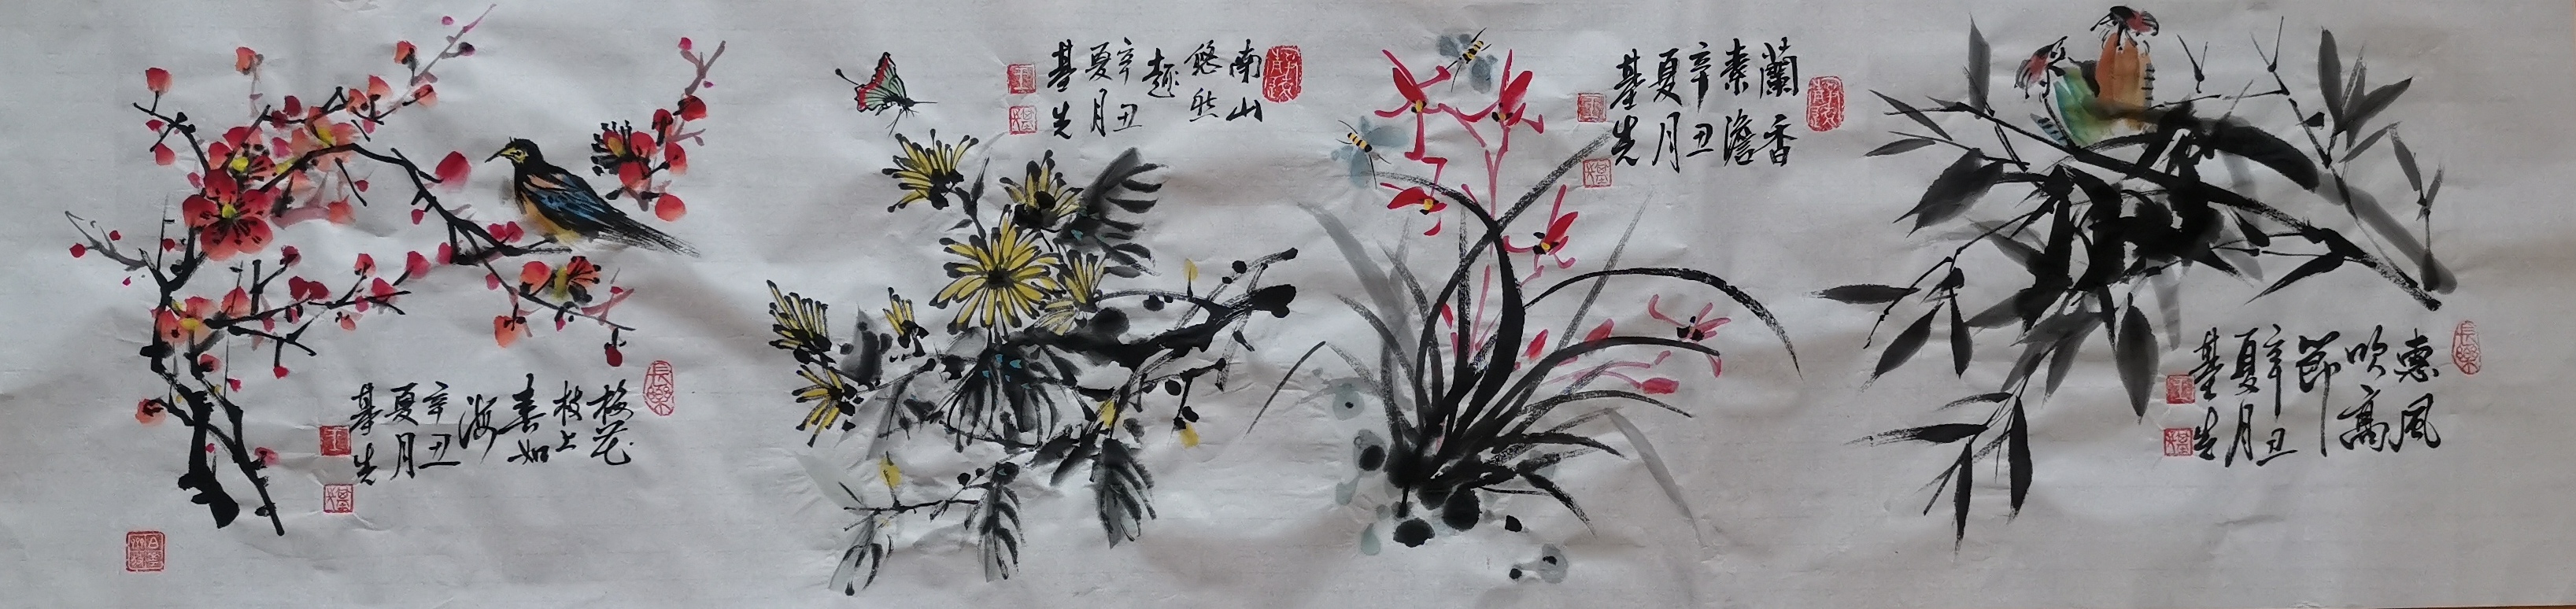 長樂
惠风
吹高
節
辛丑
夏月
基先
蘭香
素澹
辛丑
夏月
基先
南山
悠然
趣
辛丑
夏月
基先
長樂
梅花
枝上
春如
海
辛丑
夏月
基先